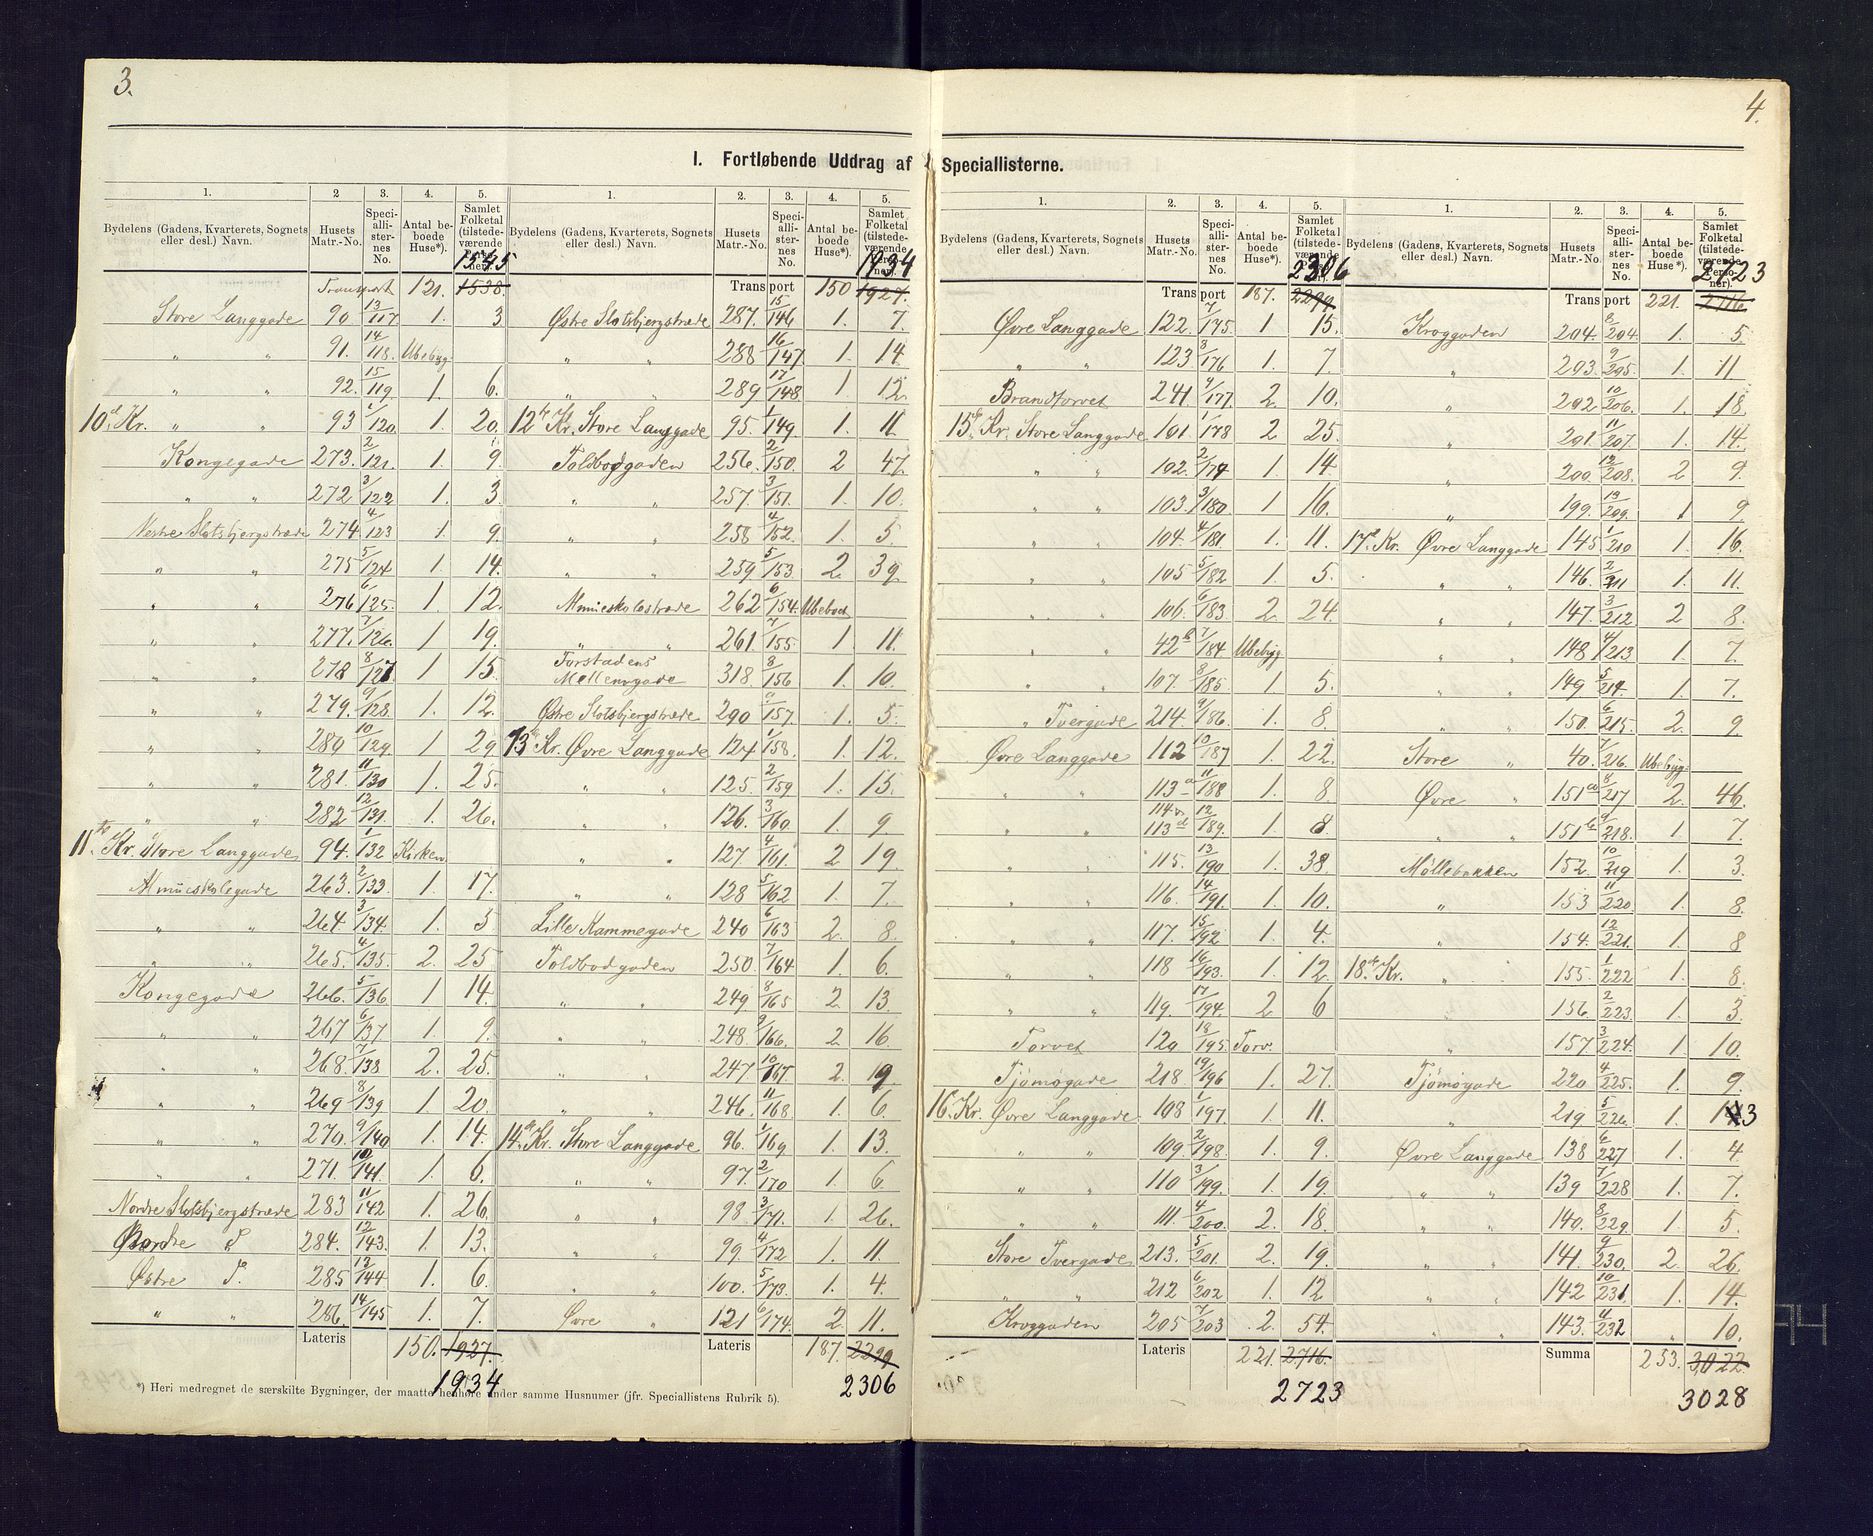 3.
4.
I. Fortløbende Uddrag af Speciallisterne.
1. 2 3. 4. 5. 1. 2. 3. 4. 5.
Bydelens (Gadens, Kvarterets, Sognets eller desl.) Navn. Husets Matr.-No. Speciallisternes No. Antal beboede Huse*). Samlet Folketal (tilstedeværende Personer). Bydelens (Gadens, Kvarterets, Sognets eller desl.) Navn. Husets Matr.-No. Speciallisternes No. Antal beboede Huse*). Samlet Folketal (tilstedeværende Personer).
1545 1934
Transport 121. 1538. Transport 150 1927.
Store Langgade 90 13/117 1. 3 Østre Slotsbjergstræde 287. 15/146 1. 7.
" " 91. 14/118. Ubebyg " " 288 16/147 1. 14
" " 92. 15/119. 1. 6. " " 289 17/148 1 12
10d Kr. " " 93 1/120. 1. 20. 12te Kr. Store Langgade 95. 1/149. 1. 11
Kongegade 273. 2/121. 1. 9. Toldbodgaden 256. 2/150. 2 47.
" " 272 3/122 1. 3. " " 257. 3/151. 1. 10.
Vestre Slotsbjergstræde 274 4/123 1. 9. " " 258 4/152. 1. 5.
" " 275 5/124 1. 14. " " 259 5/153 2. 39.
" " 276 6/125. 1. 12. Almueskolestræde 262 6/154. Ubeboet
" " 277. 7/126. 1 19. " " 261 7/155 1. 11.
" " 278 8/127 1 15. Forstadens Møllenvgade 318. 8/156 1. 10.
" " 279. 9/128. 1. 12. Østre Slotsbjergstræde 290 9/157 1. 5.
" " 280 10/129. 1 29 13de Kr. Øvre Langgade 124 1/158. 1. 12.
" " 281. 11/130 1. 25. " " 125. 2/159 1. 15.
" " 282 12/131. 1. 26. " " 126. 3/160. 1. 9.
11te Kr. Store Langgade 94. 1/132 Kirken " " 127 4/161. 2 19.
Almueskolegade 263. 2/133. 1. 17. " " 128 5/162 1. 7.
" " 264. 3/134. 1. 5 Lille Kammegade 240 6/163 2. 8.
" " 265. 4/135. 2. 25 Toldbodgaden 250. 7/164 1. 6.
Kongegade 266. 5/136 1 14. " " 249. 8/165 2. 13.
" " 267 6/137 1. 9. " " 248. 9/166. 2. 16
" " 268. 7/138 2. 25. " " 247 10/167. 2. 19.
" " 269 8/139 1. 20. " " 246. 11/168 1. 6.
" " 270. 9/140 1. 14. 14de Kr. Store Langgade 96. 1/169 1. 13.
" " 271. 10/141. 1. 6. " " 97. 2/170 1. 6
Nordre Slotsbjergstræde 283 11/142 1. 26. " " 98. 3/171. 1. 26.
Nordre S 284. 12/143. 1. 13. " " 99. 4/172 1. 11.
Østre S. 285 13/144 1. 6. " " 100. 5/173. 1. 4.
" " 286. 14/145 1. 7. Øvre " 121 6/174. 2. 11.
Lateris 150. 1927. Lateris 187. 2299
1934 2306
*) Heri medregnet de særskilte Bygninger, der maatte henhøre under samme Husnumer (jfr. Speciallistens Rubrik 5).
1. 2. 3. 4. 5. 1. 2. 3. 4. 5.
Bydelens (Gadens, Kvarterets, Sognets eller desl.) Navn. Husets Matr.-No. Speciallisternes No. Antal beboede Huse*). Samlet Folketal (tilstedeværende Personer). Bydelens (Gadens, Kvarterets, Sognets eller desl.) Navn. Husets Matr.-No. Speciallisternes No. Antal beboede Huse*). Samlet Folketal (tilstedeværende Personer).
2306 2723
Transport 187. 2299 Transport 221. 2716
Øvre Langgade 122. 7/175. 1 15. Kroggaden 204. 8/204. 1. 5
" " 123 8/176 1. 7. " 203. 9/205. 1. 11
Brandtorvet 241 9/177. 2. 10. " 202 10/206. 1. 18
15de Kr. Store Langgade 101 1/178 2 25. " 201 11/207 1. 14.
" " 102. 2/179 1. 14 " 200. 12/208. 2 9.
" " 103. 3/180 1 16. " 199. 13/209. 1 9
" " 104. 4/181 1. 11. 17de Kr. Øvre Langgade 145 1/210 1. 16.
" " 105 5/182 1. 5. " " 146. 2/211 1. 11.
" " 106. 6/183 2. 24. " " 147. 3/212 2 8.
" " 42b 7/184 Ubebyg " " 148 4/213 1. 7.
" " 107. 8/185. 1 5. " " 149 5/214. 1. 7.
" Tvergade 214. 9/186. 1. 8. " " 150. 6/215. 2. 9
Øvre Langgade 112 10/187 1. 22. Store " 40. 7/216. Ubebyg
" " 113a 11/188 1. 8. Øvre " 151a 8/217 2. 46.
" " 114 & 113d 12/189. 1. 8 " " 151b 9/218. 1. 7.
" " 115. 13/190 1. 38. Møllebakken 152. 10/219 1. 3.
" " 116. 14/191. 1. 10. " 153 11/220 1. 8.
" " 117. 15/192 1. 4. " 154. 12/221. 1. 8
" " 118 16/193. 1. 12. 18de Kr. " 155. 1/222 1. 8.
" " 119. 17/194. 2 6 " 156. 2/223. 1. 3.
Torvet 120 18/195. Torv. " 157. 3/224. 1. 10.
Tjømøgade 218 19/196 1. 27. Tjømøgade 220 4/225. 1. 9.
16de Kr. Øvre Langgade 108 1/197. 1. 11. " 219. 5/226. 1. 13
" " 109. 2/198. 1. 9. Øvre Langgade 138 6/227 1. 4
" " 110 3/199. 1. 19. " " 139 7/228 1. 7.
" " 111. 4/200. 2. 18. " " 140. 8/229 1. 5.
Store Tvergade 213. 5/201. 2. 19. " " 141. 9/230. 2 26.
" " 212 6/202 1. 12 " " 142 10/231 1. 14.
Kroggaden 205 7/203 2. 54. " " 143. 11/232 " 10.
Lateris 221. 2716. Summa 253. 3022
2723 3028